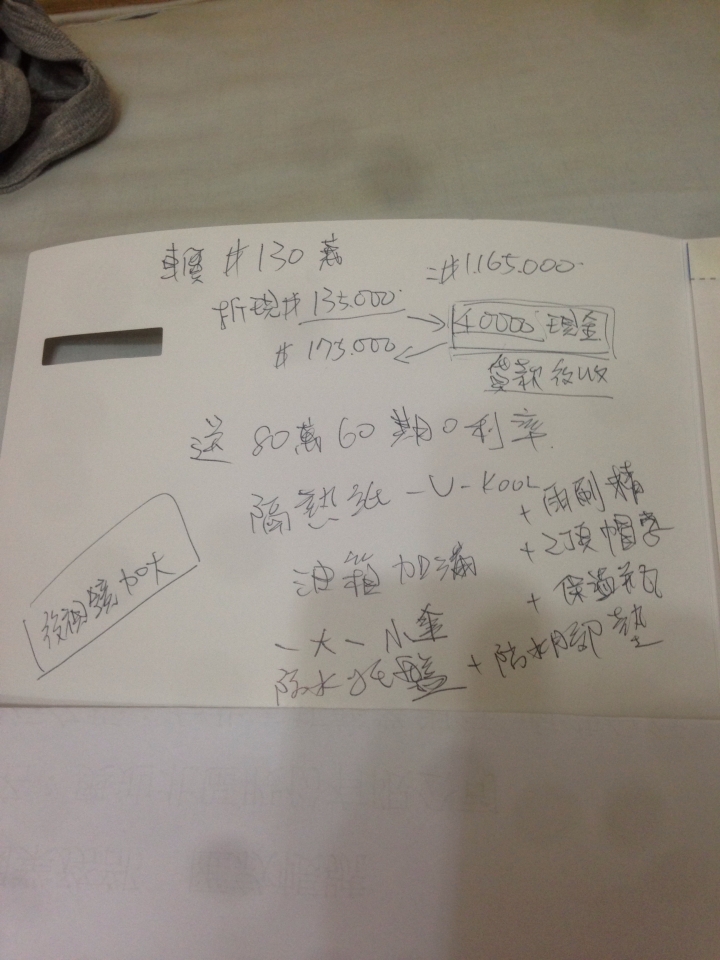 車價 #130萬 =#1.165.000.
折現 #135.000. → 40000 現金
#175.000 ← 貸款後收
送 80萬 60期 0利率
隔熱紙 - U-KOOL + 雨刷精
油箱加滿 + 2頂帽子
+ 保溫瓶
一大一小傘
防水托盤 + 防水腳踏墊
後視鏡加大